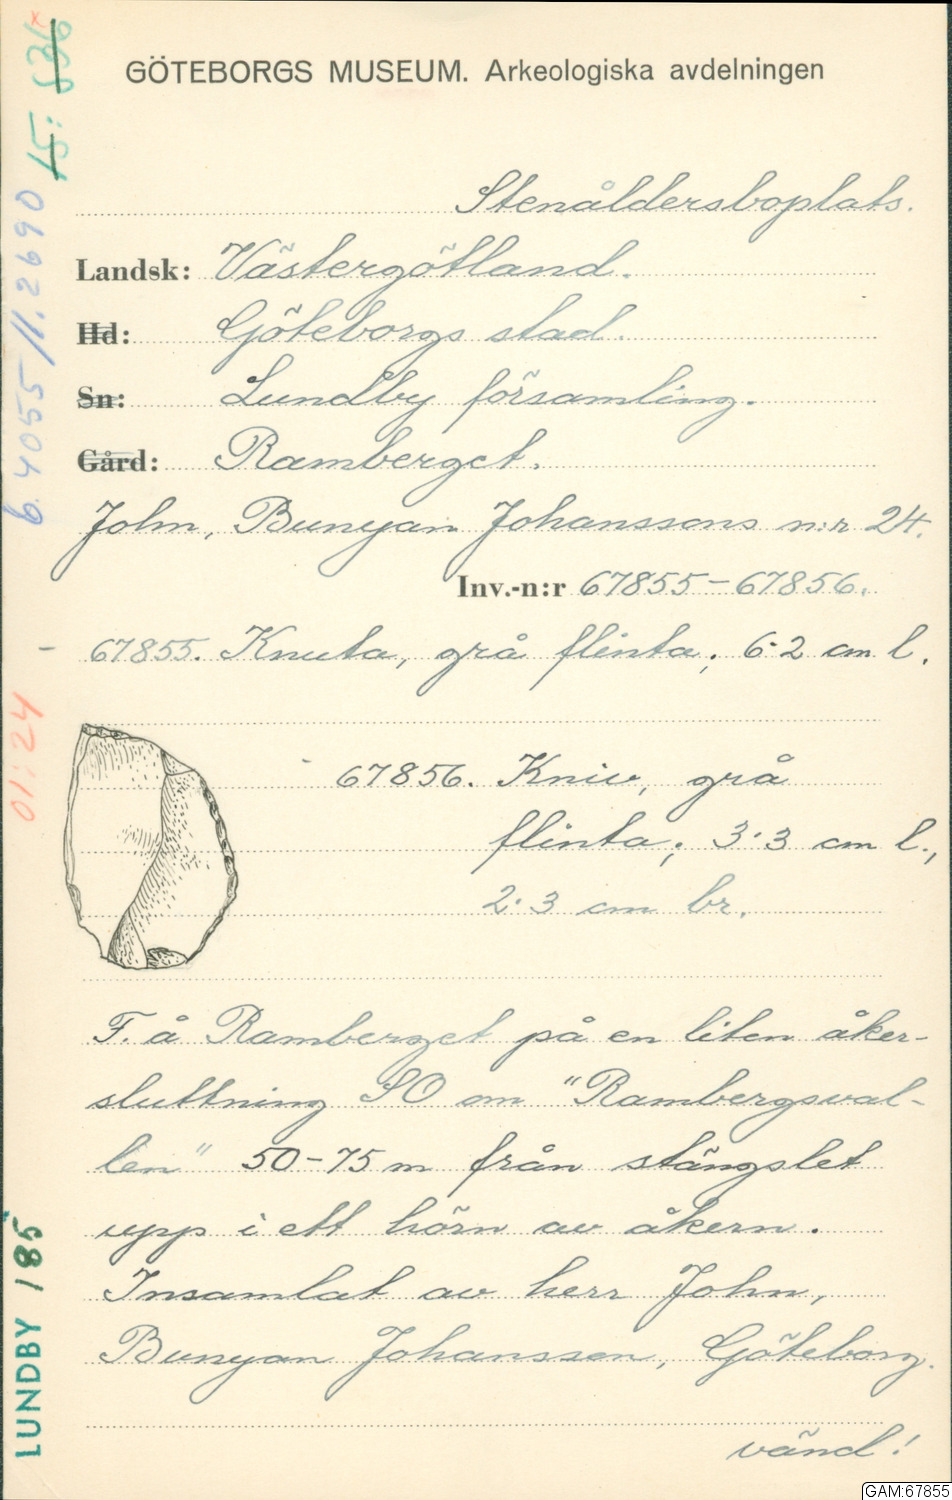 GÖTEBORGS MUSEUM. Arkeologiska avdelningen
Stenåldersboplats.
Landsk: Västergötland.
Hd: Göteborgs stad.
Sn: Lundby församling.
Gård: Ramberget.
John, Bunyan Johanssons n:r 24.
Inv.-n:r 67855-67856.
67855. Knuta, grå flinta; 6·2 cm l.
67856. Kniv, grå
flinta; 3·3 cm l.,
2·3 cm br.
F. å Ramberget på en liten åker-
sluttning SO om "Rambergsval-
len" 50-75 m från stängslet
upp i ett hörn av åkern.
Insamlat av herr John,
Bunyan Johansson, Göteborg.
vänd!
15: 536
6.4055/1.2690
01:24
LUNDBY 185
GAM:67855